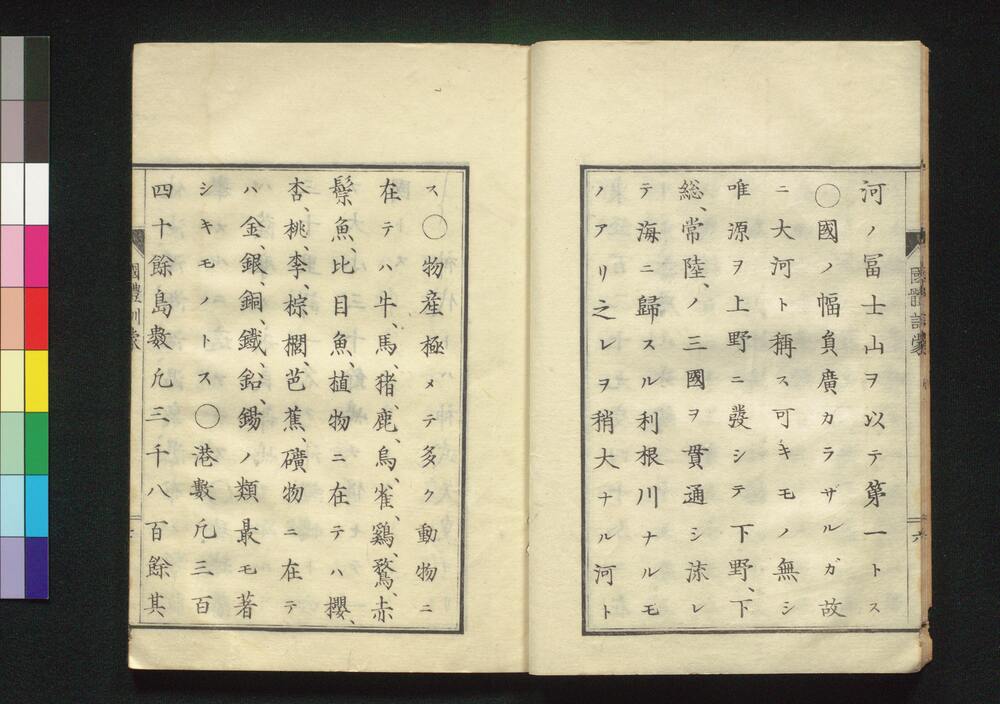 河ノ冨士山ヲ以テ第一トス
〇國ノ幅負廣カラザルガ故
ニ大河ト稱ス可キモノ無シ
唯源ヲ上野ニ發シテ下野、下
総、常陸、ノ三國ヲ貫通シ流レ
テ海ニ歸スル利根川ナルモ
ノアリ之レヲ稍大ナル河ト
國體訓蒙
六
ス〇物産極メテ多ク動物ニ
在テハ牛、馬、猪、鹿、烏、雀、鷄、鶩、赤
鬃魚、比目魚、植物ニ在テハ櫻、
杏、桃、李、棕櫚、芭蕉、礦物ニ在テ
ハ金、銀、銅、鐵、鉛、錫ノ類最モ著
シキモノトス〇港數凢三百
四十餘島數凢三千八百餘其
國體訓蒙